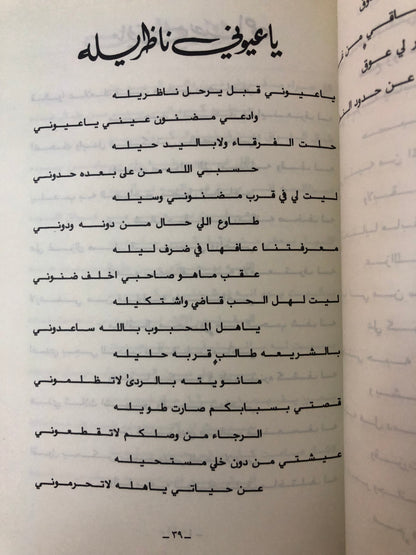 ياعيوني ناظريله
ياعيوني قبل يرحل ناظريله
وادعي مضنون عيني ياعيوني
حلت الفرقاء ولاباليد حيله
حسبي الله من على بعده حدوني
ليت لي في قرب مضنوني وسيله
طاوع اللي حال من دونه ودوني
معرفتنا عافها في ظرف ليله
عقب ماهو صاحبي اخلف ضنوني
ليت لهل الحب قاضي واشتكيله
ياهل المحبوب بالله ساعدوني
بالشريعه طالبٍ قربه حليله
مانويته بالردىٰ لاتظلموني
قصتي بسبابكم صارت طويله
الرجاء من وصلكم لاتقطعوني
عيشتي من دون خلي مستحيله
عن حياتي ياهله لاتحرموني
ـ ٣٩ ـ
وق
ساقي من
ر لي عوق
عن حدود